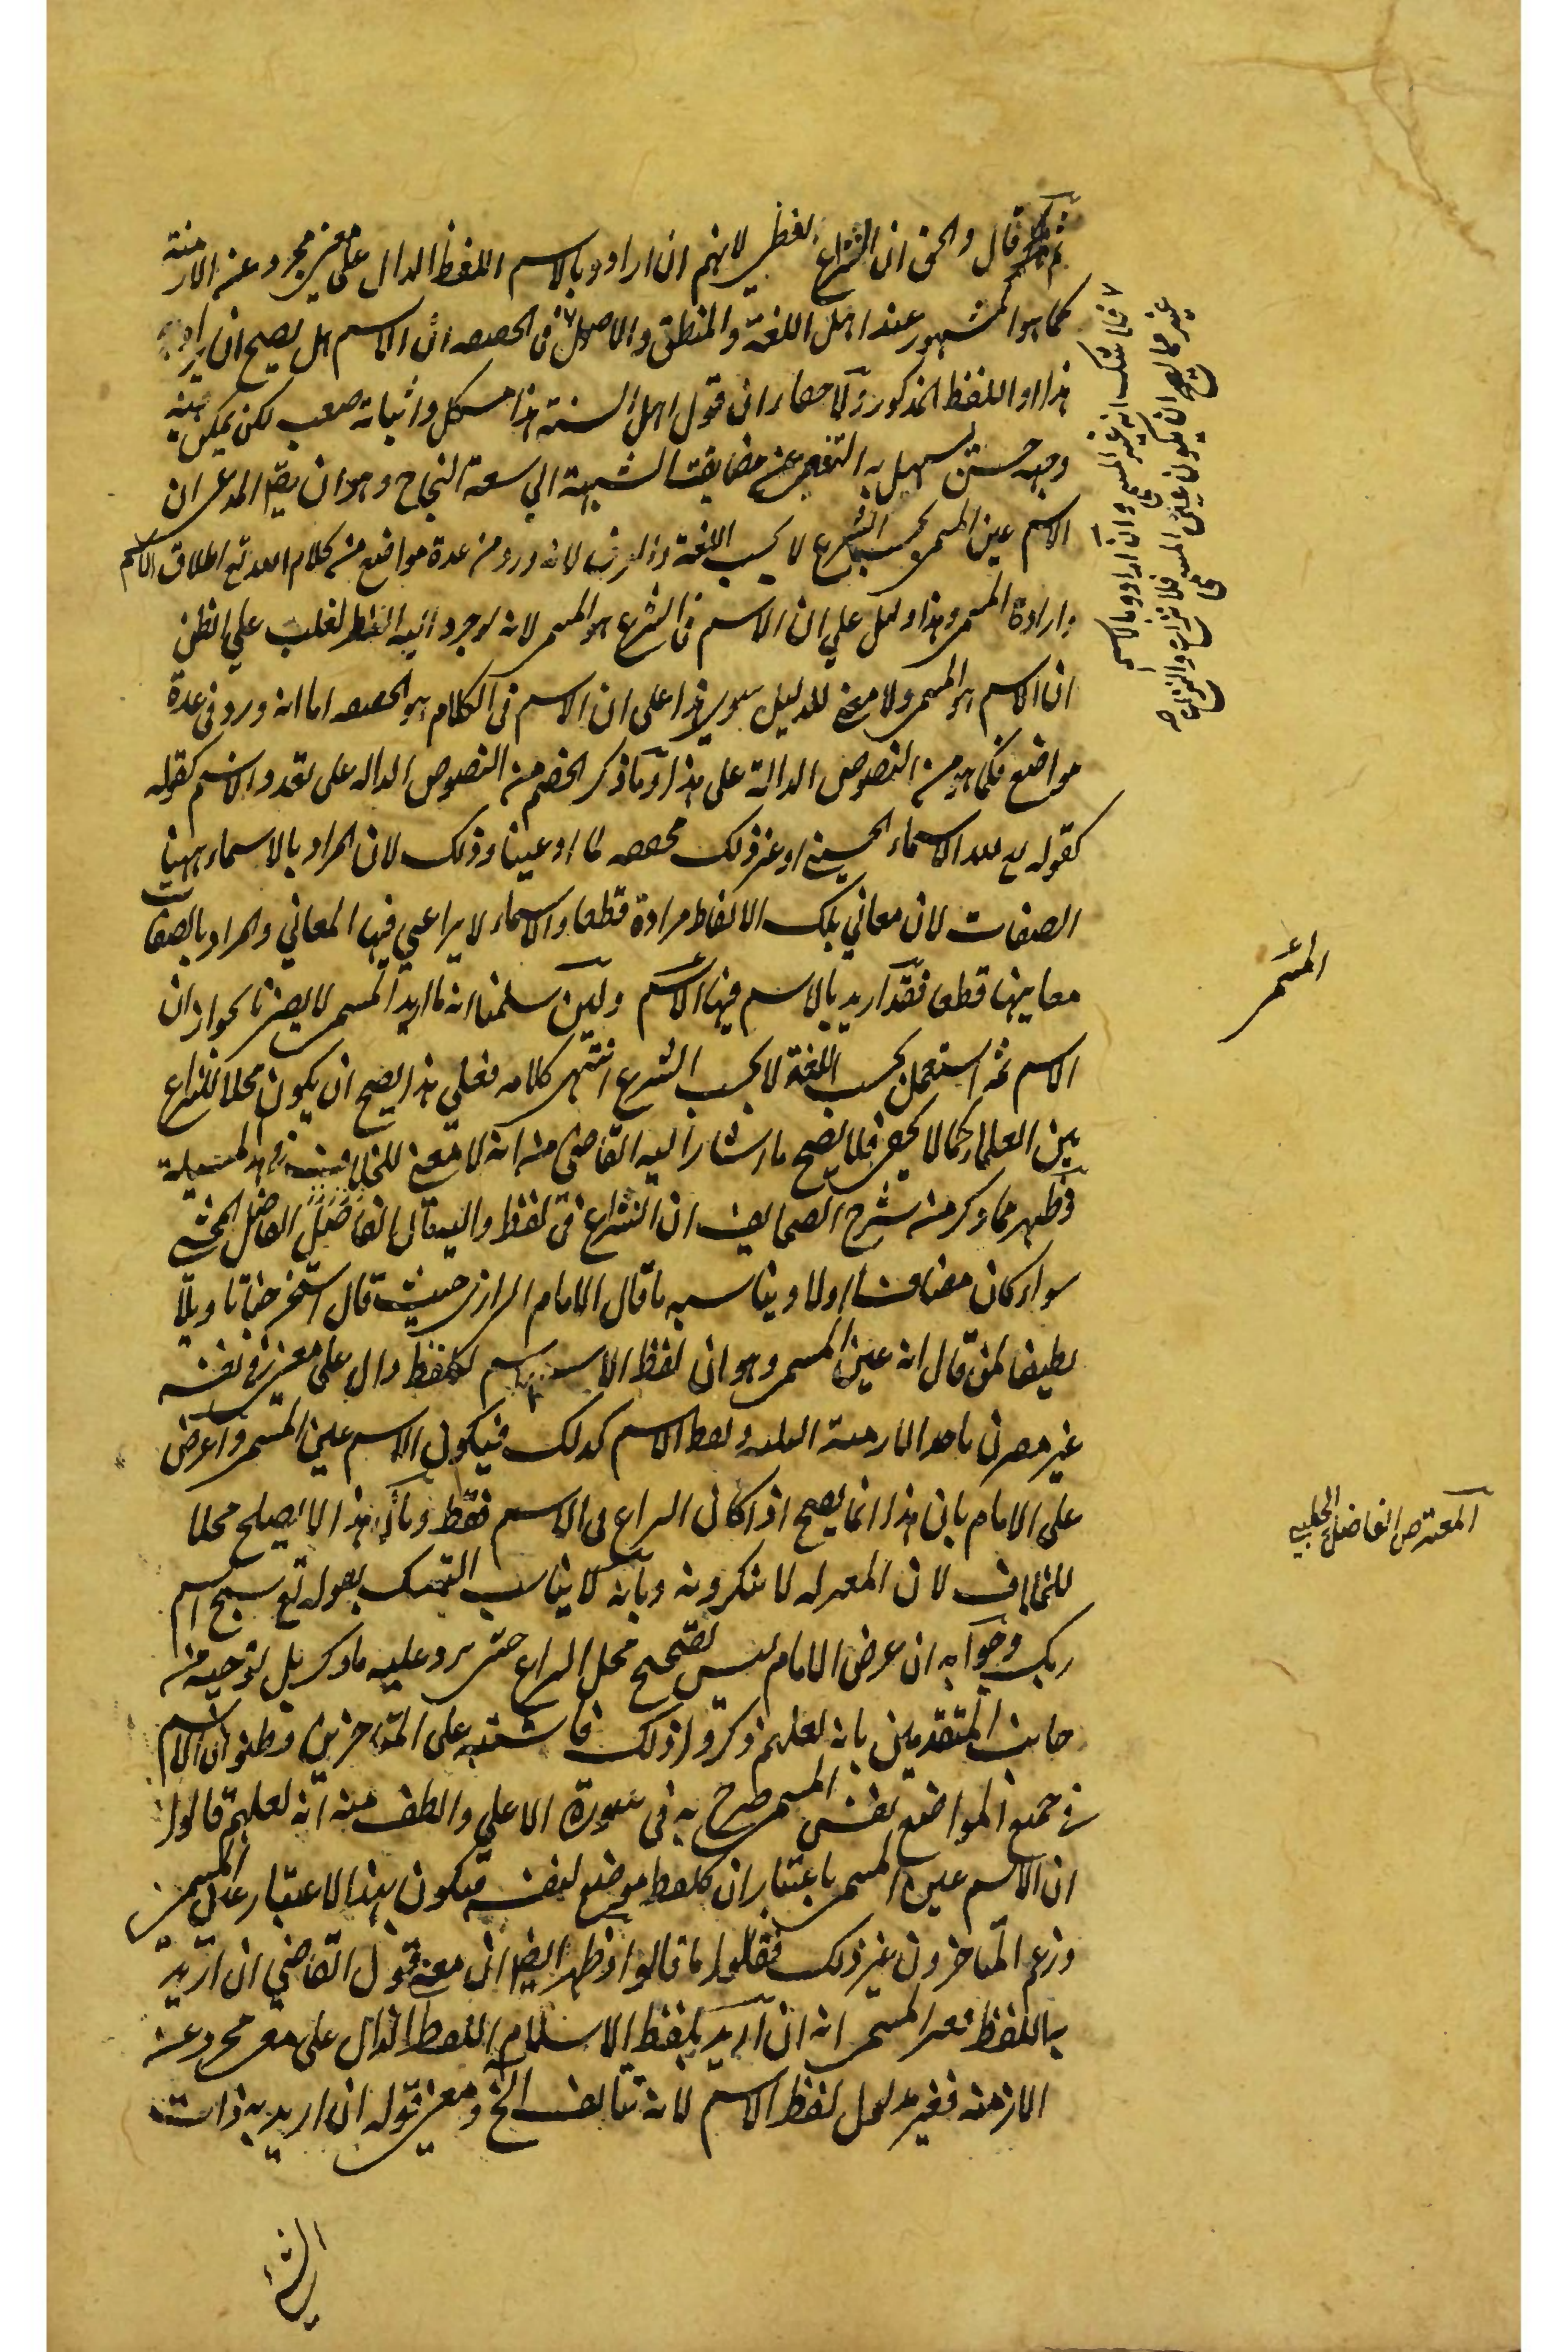 ثم قال والحق ان النزاع لفظي لانهم ان ارادوا بالاسم اللفظ الدال على معنى مجرد عن الازمنة
كما هو المشهور عند اهل اللغة والمنطق والاصول في الحصصه ان الاسم هل يصح ان يراد به
هذا او اللفظ المذكور والحاصل ان قول اهل السنة هذا مشكل واثباته صعب لكن يمكن فيه
وجه حسن يسهل به التفصي عن مضايقت الشبهة الى سعة النجاح وهو ان يق المدعى ان
الاسم عين المسمى بحسب الشرع لا بحسب اللغة والعرف لانه ورد في عدة مواضع من كلام الله تع اطلاق الاسم
وارادة المسمى وهذا دليل على ان الاسم في الشرع هو المسمى لانه لو جرد اليه النظر لغلب على الظن
ان الاسم هو المسمى ولا معنى للدليل سوى هذا على ان الاسم في الكلام هو الحصصه اما انه ورد في عدة
مواضع فكما مر من النصوص الدالة على هذا وما ذكر الخصم من النصوص الداله على تعدد الاسم كقوله
كقوله تع لله الاسماء الحسنى او غير ذلك مخصصه لما ادعينا وذلك لان المراد بالاسماء ههنا
الصفات لان معاني تلك الالفاظ مرادة قطعا والاسماء لا يراعي فيها المعاني والمراد بالصفات
معانيها قطعا فقد اريد بالاسم فيها الاسم ولئن سلمنا انه ما اريد المسمى لا يضرنا لجواز ان
الاسم ثمه استعمل بحسب اللغة لا بحسب الشرع انتهى كلامه فعلى هذا يصح ان يكون محلا للنزاع
بين العلماء كما لا يخفى فلا يصح ما اشار اليه القاضي من انه لا معنى للخلاف في هذه المسئلة
فظهر مما ذكر من شرح الصحايف ان النزاع في لفظ واليه قال الفاضل المحشي
سواء كان مضافا اولا ويناسبه ما قال الامام الرازي حيث قال استخرجنا تاويلا
لطيفا لمن قال انه عين المسمى وهو ان لفظ الاسم اسم لكل لفظ دال على معنى في نفسه
غير مقترن باحد الازمنة الثلثة ولفظ الاسم كذلك فيكون الاسم عين المسمى واعترض
على الامام بان هذا انما يصح اذا كان النزاع في الاسم فقط وبان هذا لا يصلح محلا
للخلاف لان المعتزله لا ينكرونه وبانه لا يناسب التمسك بقوله تع سبح اسم
ربك وجوابه ان غرض الامام ليس تصحيح محل النزاع حتى يرد عليه ما ذكر بل توجيه من
جانب المتقدمين بانه لعلهم ذكروا ذلك فاشتبه على المتاخرين وظنوا ان الاسم
في جميع المواضع نفس المسمى صرح به في سورة الاعلى والطف منه انه لعلهم قالوا
ان الاسم عين المسمى باعتبار ان كل لفظ موضع لنفسه فيكون بهذا الاعتبار عين المسمى
وزعم المتاخرون غير ذلك فقالوا ما قالوا وظهر ايضا ان معنى قول القاضي ان اريد
باللفظ فغير المسمى انه ان اريد بلفظ الاسم اللفظ الدال على معنى مجرد عن
الازمنه فغير مدلول لفظ الاسم لانه يتالف الخ ومعنى قوله ان اريد به ذات
الشئ
فلا شك انه غير المسمى وان ارادوا بالاسم
غير مما يصح ان يكون عين المسمى فلا نزاع والنزاع ح
المسمى
المعترض الفاضل الحلبي